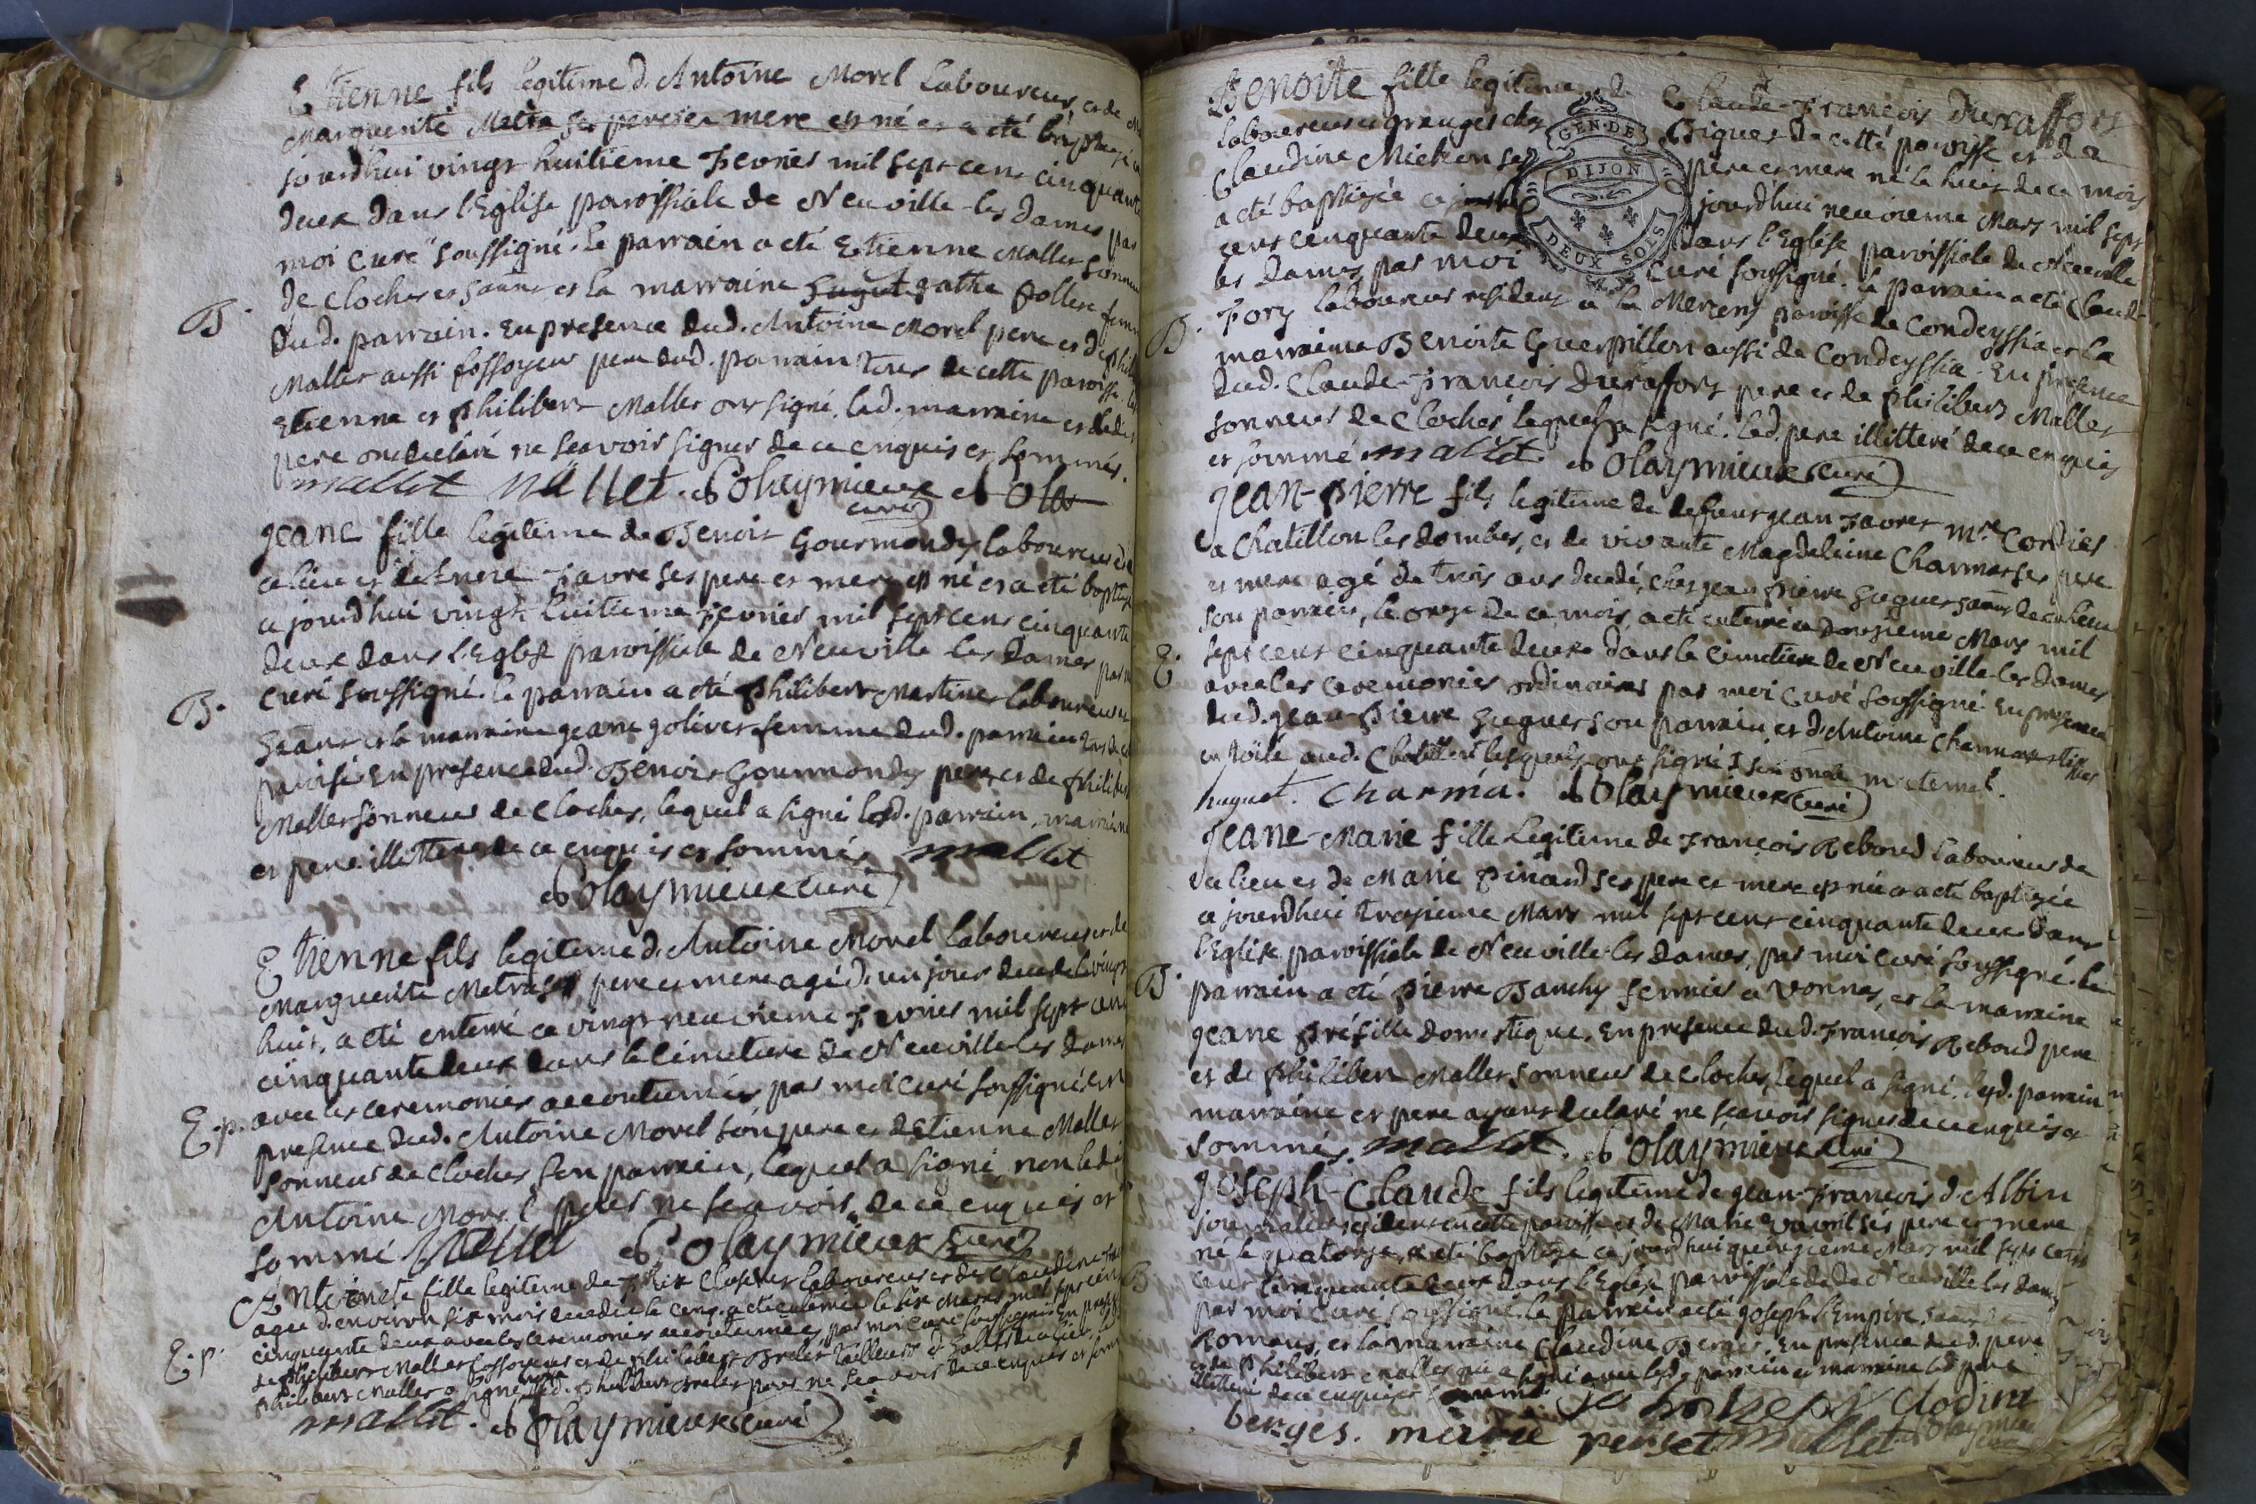 Etienne fils legitime d. Antoine Morel Laboureur, et de
Marguerite Metra ses pere et mere est né et a été baptisé ce
jourdhui vingt huitieme Fevrier mil sept cens cinquante
deux dans l'Eglise paroissiale de Neuville-les dames par
moi Curé soussigné. le parrain a été Etienne Mallet sonneur
de Cloches et la marraine
dud. parrain. En presence dud. Antoine Morel pere et de
Mallet aussi fossoyeur pere dud. parrain tous de cette paroisse.
Etienne et Philibert Mallet ont signé. lad. marraine et led.
pere ont declaré ne sçavoir signer de ce enquis et sommés.
mallet Mallet. Dolaymieux
curé
Jeane fille legitime de Benoit Gourmondy laboureur
ce lieu et de Favre ses pere et mere est né et a été baptisé
ce jourdhui vingt huitieme Fevrier mil sept cens cinquante
deux dans l'Eglise paroissiale de Neuville les Dames
Curé soussigné. le parrain a été Philibert Martine laboureur
et la marraine Jeane goliver femme dud. parrain
paroisse En presence dud. Benoit Gourmondy pere et de Philibert
Mallet sonneur de Cloches, lequel a signé lesd. parrain, marraine
et pere illitterés de ce enquis et sommés mallet
Dolaymieux curé
B.
B.
Etienne fils legitime d. Antoine Morel laboureur et de
Marguerite Metra ses pere et mere agé d. un jour decedé le vingt
huit, a été enterré ce vingt neuvieme Fevrier mil sept cens
cinquante deux dans le Cimetiere de Neuville les Dames
E.p. avec les ceremonies accoutumées par moi Curé soussigné En
presence dud. Antoine Morel son pere et d'Etienne Mallet
sonneur de Cloches son parrain, lequel a signé, non led.
Antoine Morel pour ne sçavoir, de ce enquis et
sommé Mallet Dolaymieux Curé
Antoinette fille legitime de Laboureur et de Claudine
agée d'environ six mois decedée le cinq, a été enterrée le six Mars mil sept cens
cinquante deux avec les ceremonies accoutumées, par moi Curé soussigné En presence
E.p. de Philibert Mallet fossoyeur et de Philibert
Philibert Mallet a signé non led. Philibert pour ne sçavoir de ce enquis et sommé
mallet. Dolaymieux curé
Benoite fille legitime de Claude-François Duraffort
laboureur et granger chez Piquet de cette paroisse et de
Claudine Micton ses pere et mere né le huit de ce mois
a été baptisée ce jourdhui neuvieme Mars mil sept
cens cinquante deux dans l'Eglise paroissiale de Neuville
les Dames par moi Curé soussigné. le parrain a été Claude
Fory laboureur resident a la paroisse de Condeyssia et la
marraine Benoite Guerpillon aussi de Condeyssia. En presence
dud. Claude-François Duraffort pere et de Philibert Mallet
sonneur de Cloches lequel a signé. led. pere illitteré de ce enquis
et sommé. mallet. Dolaymieux curé
B.
GEN. DE
DIJON
DEUX SOLS
Jean-Pierre fils legitime de defunt Jean Favret Mre. Cordier
a Chatillon les dombes, et de vivante Magdeleine Charmat ses pere
et mere agé de trois ans decedé, chez Jean Pierre Huguet de ce lieu
son parrain, le onze de ce mois, a été enterré ce douzieme Mars mil
E. sept cens cinquante deux dans le Cimetiere de Neuville les Dames
avec les ceremonies ordinaires par moi Curé soussigné En presence
dud. Jean-Pierre Huguet son parrain, et d. Antoine Charma
en toile aud. Chatillon lesquels ont signé son oncle maternel.
huguet. Charma. Dolaymieux curé
Jeane-Marie fille Legitime de François Reboud laboureur de
ce lieu et de Marie Pinard ses pere et mere est née a été baptisée
ce jourdhui mars mil sept cens cinquante deux dans
l'Eglise paroissiale de Neuville-les Dames, par moi Curé soussigné. le
B. parrain a été Pierre Banchy fermier a Vonnas, et la marraine
Jeane Pré fille domestique. En presence dud. François Reboud pere
et de Philibert Mallet sonneur de Cloches, lequel a signé. lesd. parrain
marraine et pere ayant declaré ne sçavoir signer de ce enquis et
sommés. mallet. Dolaymieux Curé
Joseph-Claude fils legitime de Jean-François d'Albin
journalier resident en cette paroisse et de Marie ses pere et mere
né le quatorze, a été baptisé ce jourdhui quinzieme Mars mil sept cens
cens cinquante deux dans l'Eglise paroissiale de de Neuville les Dames
par moi Curé soussigné. le parrain a été Joseph l'Empire
Romans, et la marraine Claudine Berges. En presence dud. pere
et de Philibert Mallet qui a signé avec lesd. parrain et marraine led. pere
illitteré de ce enquis et sommé. Clodine
berges. marie perset mallet Dolaymieux
curé